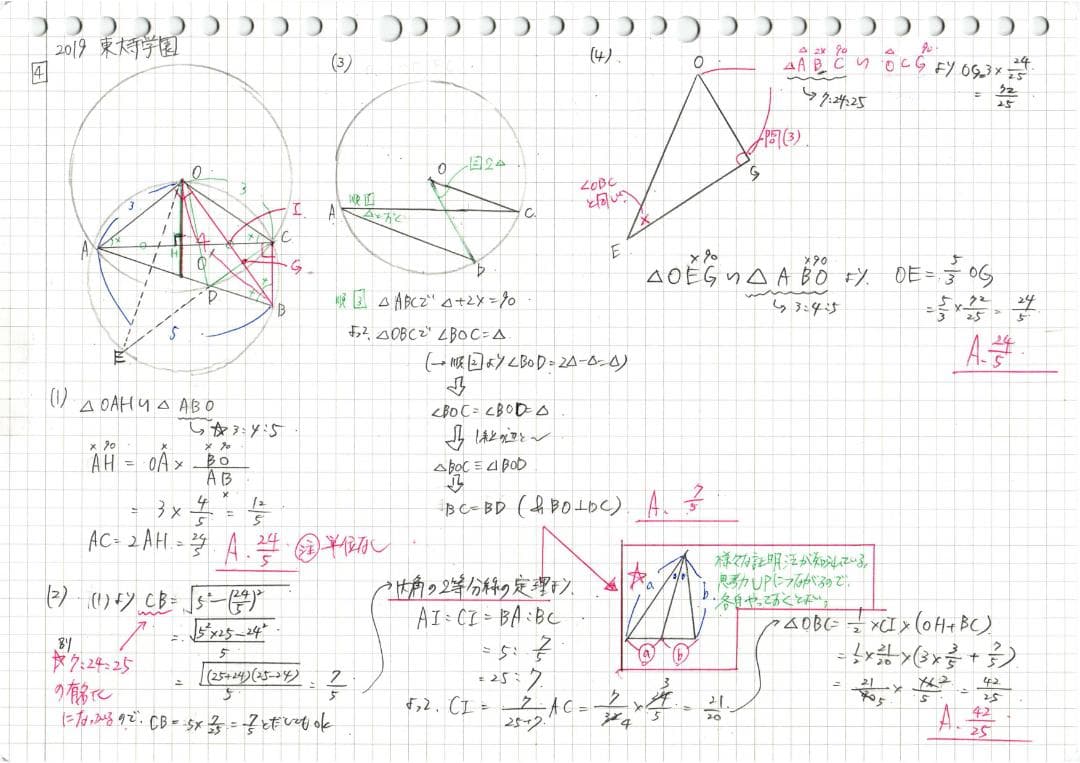 2019 東大寺学園
4
O
3
3
I
A
C
H
G
D
B
5
E
(1) △OAH∽△ABO
↳ ☆3:4:5
AH = OA × BO/AB
= 3 × 4/5 = 12/5
AC = 2AH = 24/5
A. 24/5 注 単位なし
(2) (1)より CB = √5²-(24/5)²
= √5²×25-24²/5
= √(25+24)(25-24)/5 = 7/5
☆7:24:25
の有名比
になっているので. CB = 5×7/25 = 7/5 としてもok
(3)
O
図2△
順1
A
C
B
順3 △ABCで △+2×=90
よって, △OBCで ∠BOC=△
(→順2より∠BOD=2△-△=△)
∠BOC=∠BOD=△
△BOC≡△BOD
BC=BD (&BO⊥DC)
A. 7/5
内角の2等分線の定理より
AI:CI=BA:BC
= 5:7/5
= 25:7.
よって. CI = 7/25+7 AC = 7/32 × 24/5 = 21/20
☆
a
b
ⓐ
ⓑ
様々な証明法が知られている。
思考力UPにつながるので、
各自やっておくとよい。
△OBC=1/2×CI×(OH+BC)
=1/2×21/20×(3×3/5+7/5)
=21/40×16/5=42/25
A. 42/25
(4)
O
△ABC∽OCG より OG=3×24/25
↳7:24:25
= 72/25
同(3)
G
∠OBC
と同じ
×
E
△OEG∽△ABO より. OE=5/3 OG
↳3:4:5
=5/3×72/25=24/5
A. 24/5